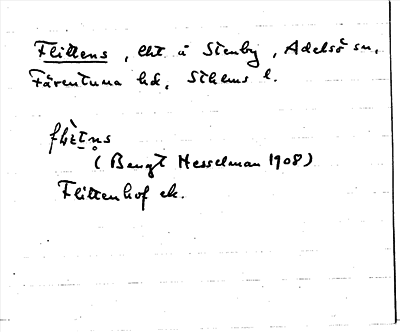 Flittens, lht å Stenby, Adelsö sn,
Färentuna hd, Sthlms l.
flìtn̥s
(Bengt Hesselman 1908)
Flittenhof ek.